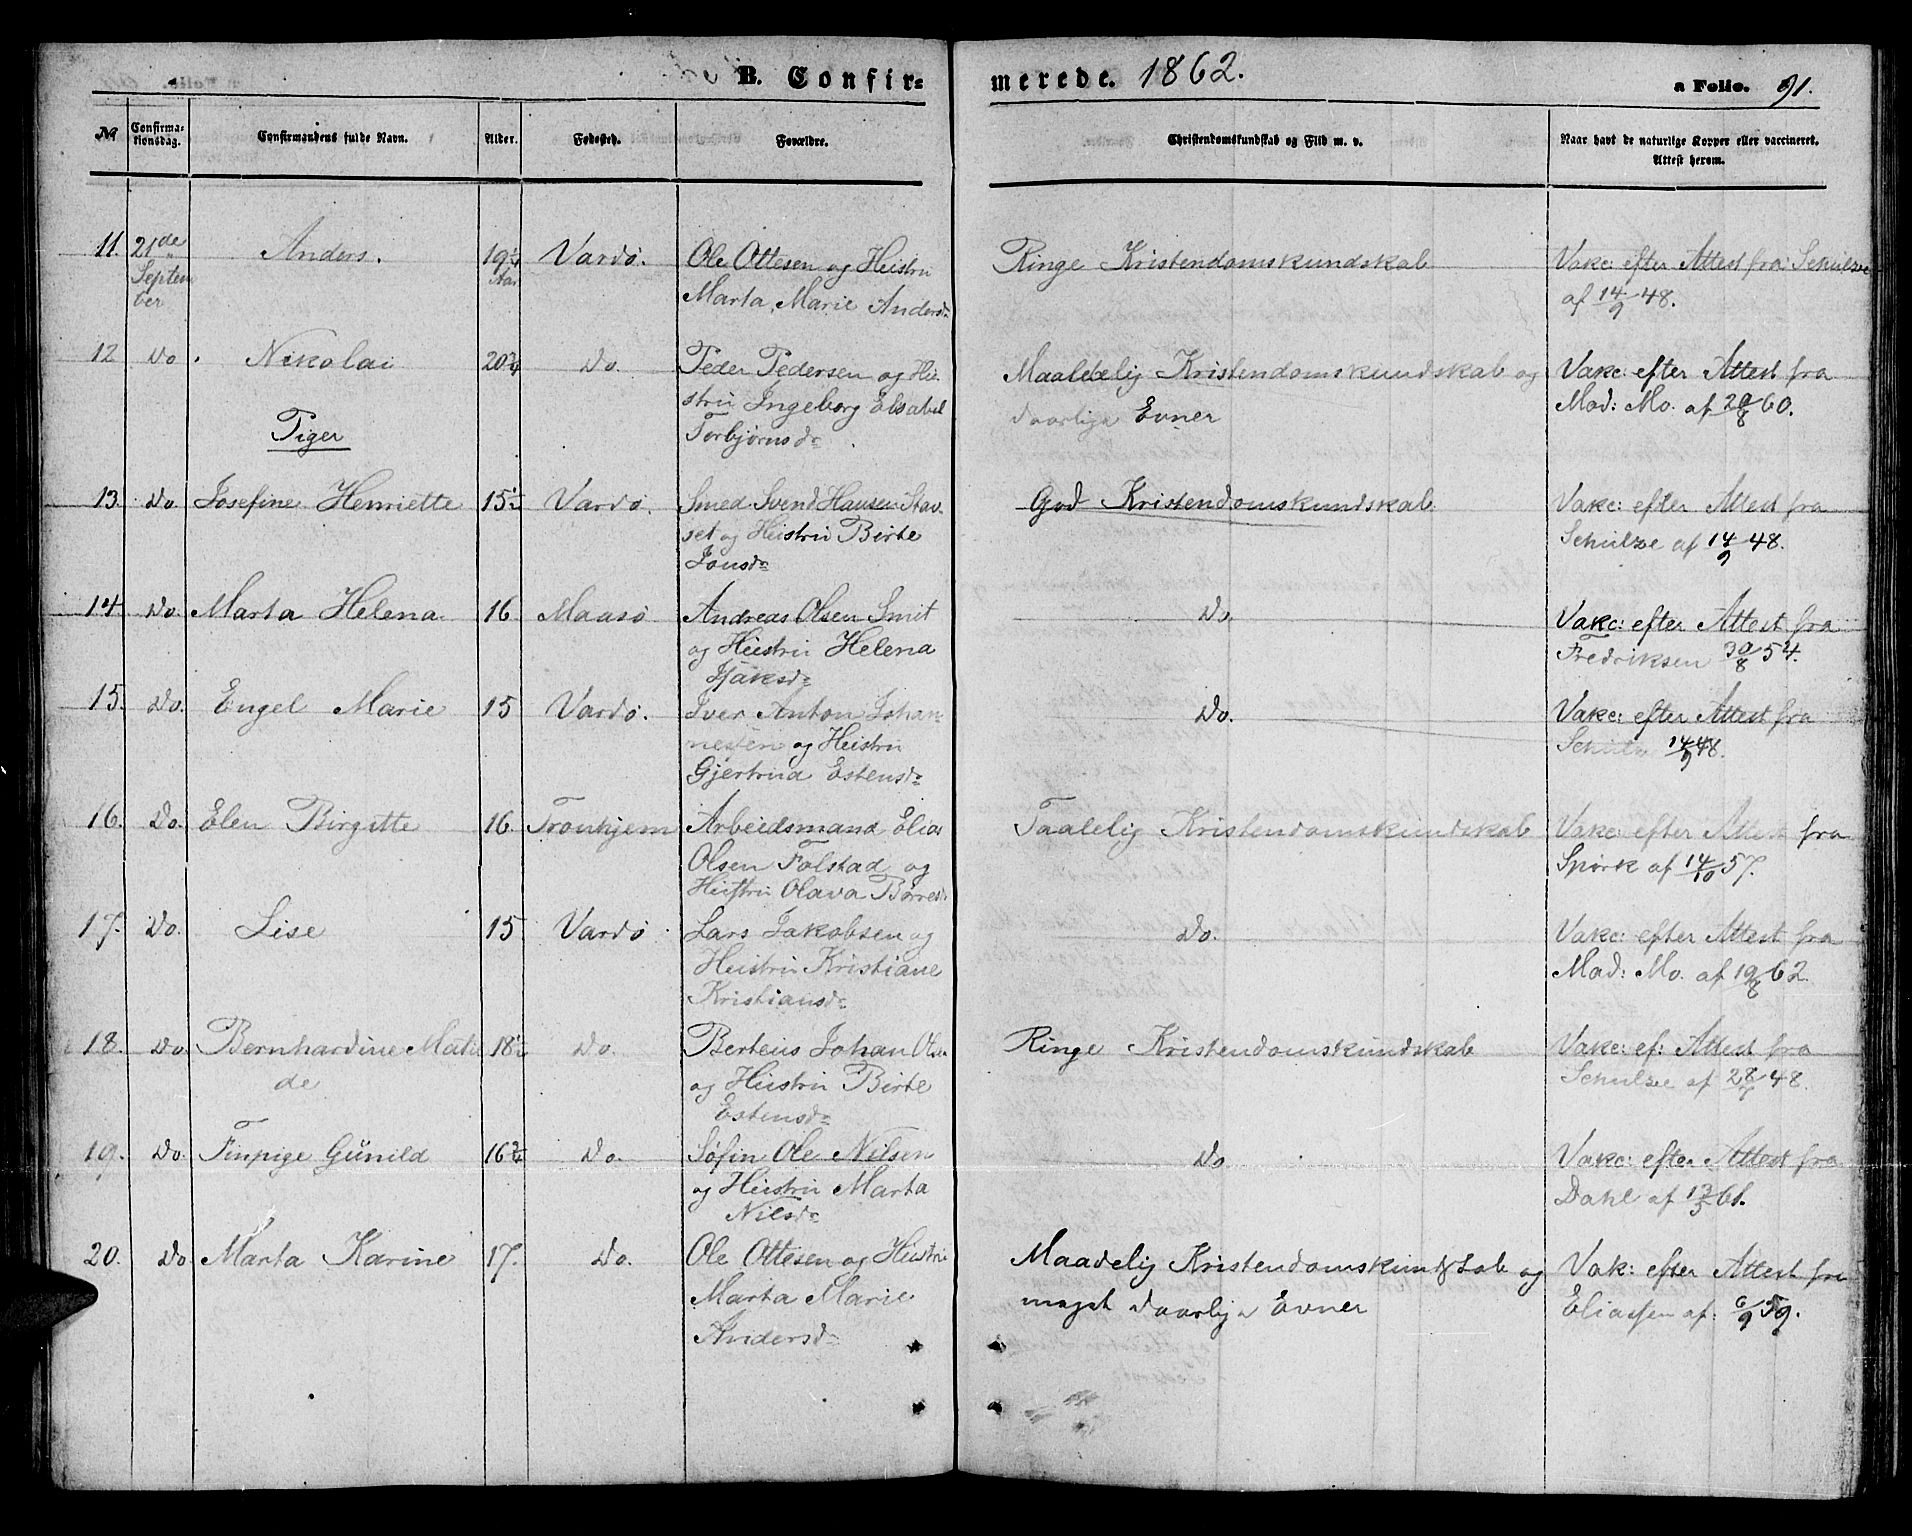 B. Confirmerede. 1862. a Folio. 91.
No Confirmationsdag. Confirmandens fulde Navn. Alder. Fødested. Forældre. Christendomskundskab og Flid m. v. Naar havt de naturlige Kopper eller vaccineret. Attest herom.
11. 21de September Anders. 19¼ Aar Vardø. Ole Ottesen og Hustru Ringe Kristendomskundskab Vakc: efter Attest fra Schulze
Marta Marie Andersdr af 14/9 48.
12 Do Nikolai 20¾ Do. Peder Pedersen og Hu- Maadelig Kristendomskundskab og Vakc: efter Attest fra
stru Ingeborg Elsabe daarlige Evner Mad: Mo. af 20/8 60.
Torbjørnsdr
Piger
13. Do Josefine Henriette 15½ Vardø. Smed Svend Hansen Stav- God Kristendomskundskab Vakc: efter Attest fra
set og Hustru Birte Schulze af 14/9 48.
Jonsdr
14 Do. Marta Helena 16 Maasø Andreas Olsen Smit Do. Vakc: efter Attest fra
og Hustru Helena Fredriksen 30/8 54.
Isaksdr
15. Do. Engel Marie 15 Vardø. Iver Anton Johan- Do. Vakc: efter Attest fra
nesen og Hustru Schulze 14/9 48.
Gjertrud Estensdr
16. Do. Elen Birgitte 16. Tronhjem Arbeidsmand Elias Taalelig Kristendomskundskab Vakc: efter Attest fra
Olsen Folstad og Spørk af 14/10 57.
Hustru Olava Børresdr
17. Do. Lise 15 Vardø Lars Jakobsen og Do. Vakc: efter Attest fra
Hustru Kristiane Mad: Mo. af 19/8 62.
Kristiansdr
18. Do Bernhardine Matil- 18½ Do. Berteus Johan Olsen Ringe Kristendomskundskab Vakc: ef: Attest fra
de og Hustru Birte Schulze af 28/7 48.
Estensdr
19. Do. Finpige Gunild 16¾ Do. Søfin Ole Nilsen Do Vakc: efter Attest fra
og Hustru Marta Dahl af 13/5 61.
Nilsdr
20. Do Marta Karine 17. Do. Ole Ottesen og Hustru Maadelig Kristendomskundskab og Vak: efter Attest fra
Marta Marie meget daarlige Evner Eliassen af 6/9 59.
Andersdr